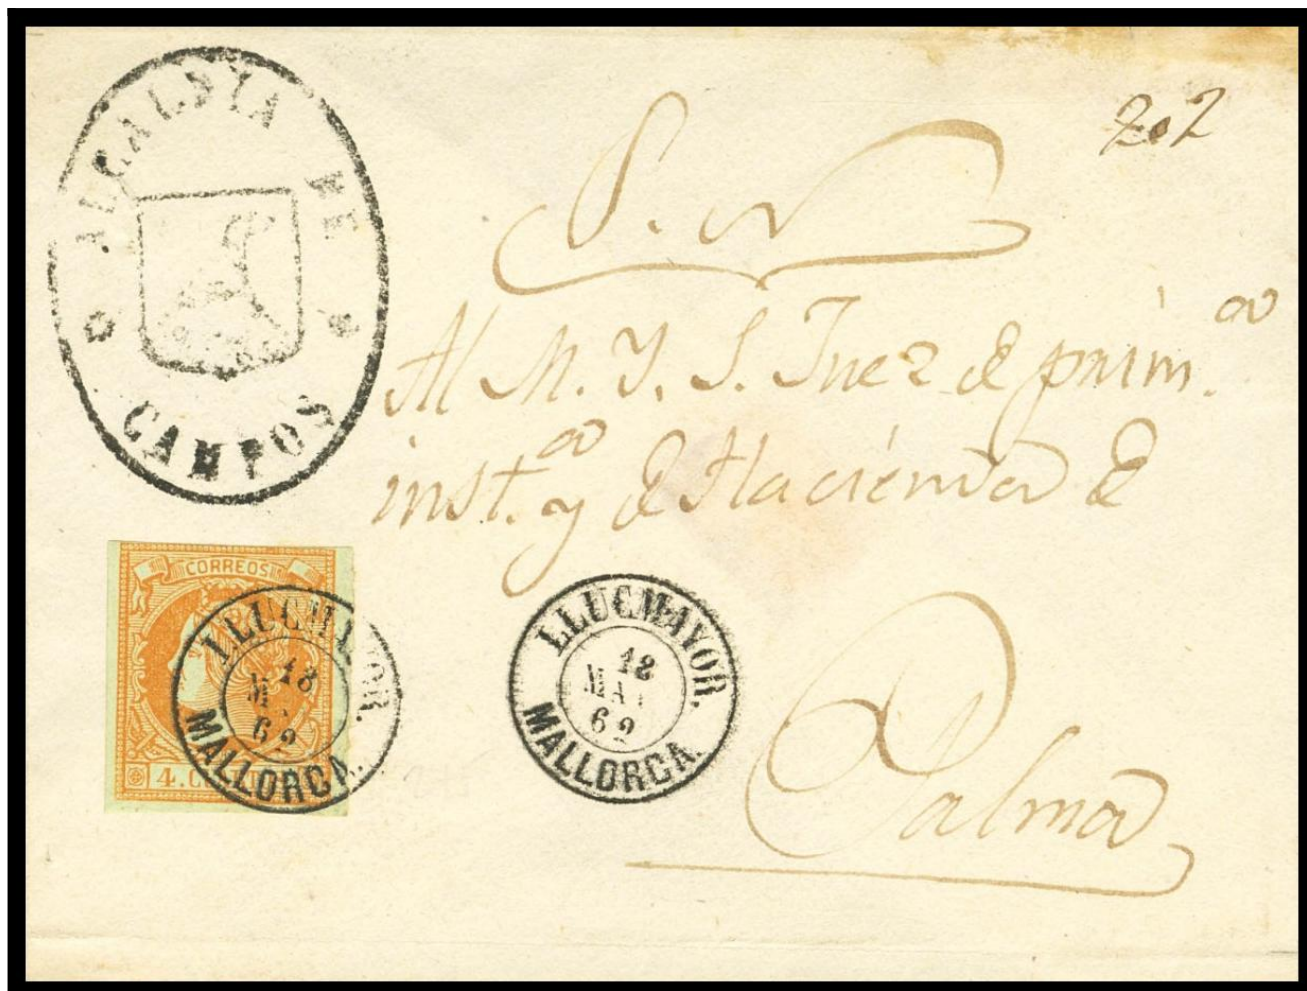 ALCALDYA DE
CAMPOS
202
S. N
Al M. Y. S. Juez de prim.ª
inst.ª y de Hacienda de
Palma
CORREOS
4.
LLUCMAYOR.
18
62
MALLORCA.
LLUCMAYOR.
18
MAY
62
MALLORCA.